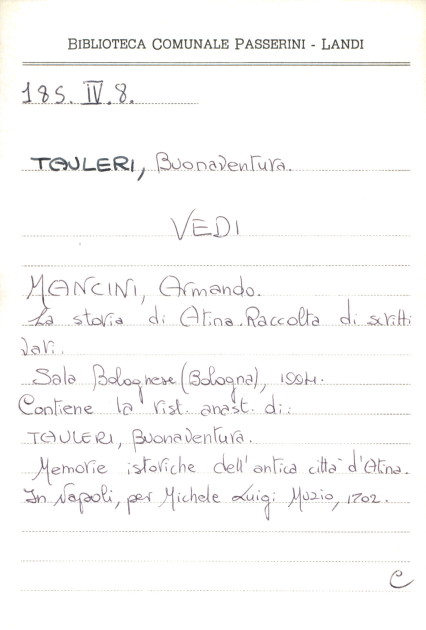 BIBLIOTECA COMUNALE PASSERINI - LANDI
185. IV. 8.
TAULERI, Buonaventura.
VEDI
MANCINI, Armando.
La storia di Atina. Raccolta di scritti
vari.
Sala Bolognese (Bologna), 1994.
Contiene la rist. anast. di:
TAULERI, Buonaventura.
Memorie istoriche dell'antica città d'Atina.
In Napoli, per Michele Luigi Muzio, 1702.
C